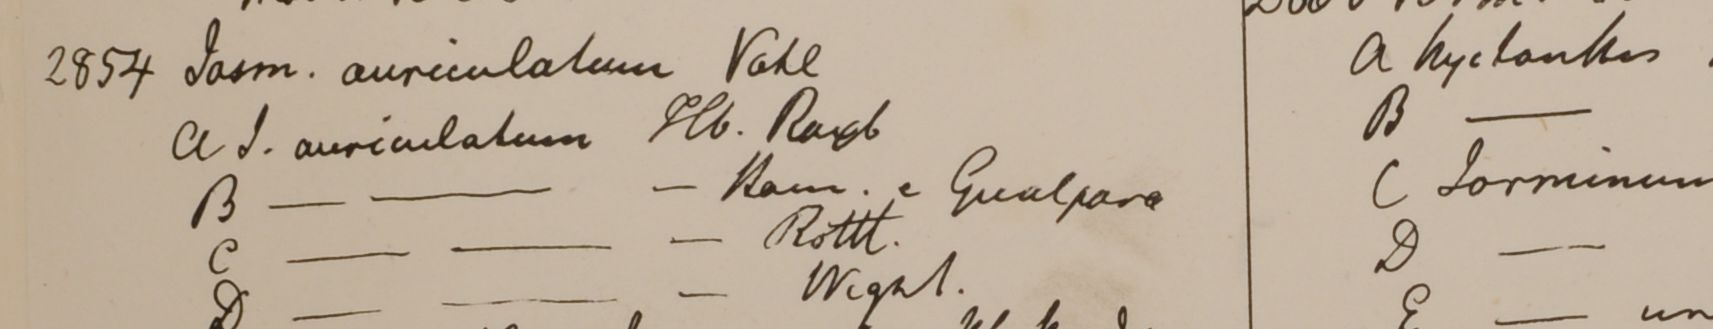 2854 Jasm. auriculatum Vahl
A J. auriculatum Hb. Roxb
B — — — Ham. e Gualpara
C — — — Rottl.
D — — — Wight.
A Nyctanthes
B —
C Jasminum
D —
E — un